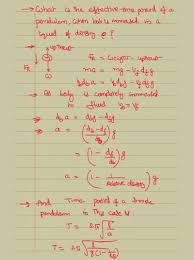 → What is the effective time period of a
pendulum, when bob is immersed in a
liquid of density ρ?
→ upthrust
F_R = weight - upthrust
F_R
ma = mg - V_f d_f g
ω
V_b d_b a = V_b d_b g - V_f d_f g
→ As body is completely immersed
in fluid V_b = V_f
→ d_b a = d_b g - d_f g
→ a = (d_b - d_f / d_b) g
= (1 - d_f / d_b) g
a = (1 - 1 / relative density) g
→ And Time period of a simple
pendulum in this case is
T = 2π √(l / a)